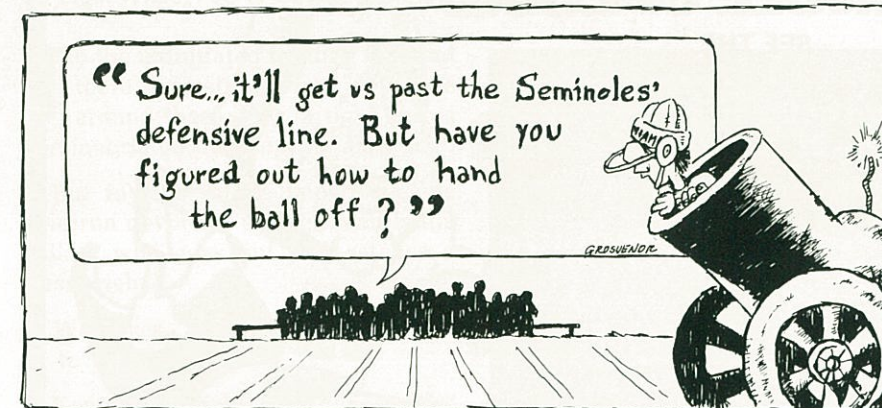 “ Sure... it'll get us past the Seminoles'
defensive line. But have you
figured out how to hand
the ball off ? ”
MIAMI
GROSVENOR